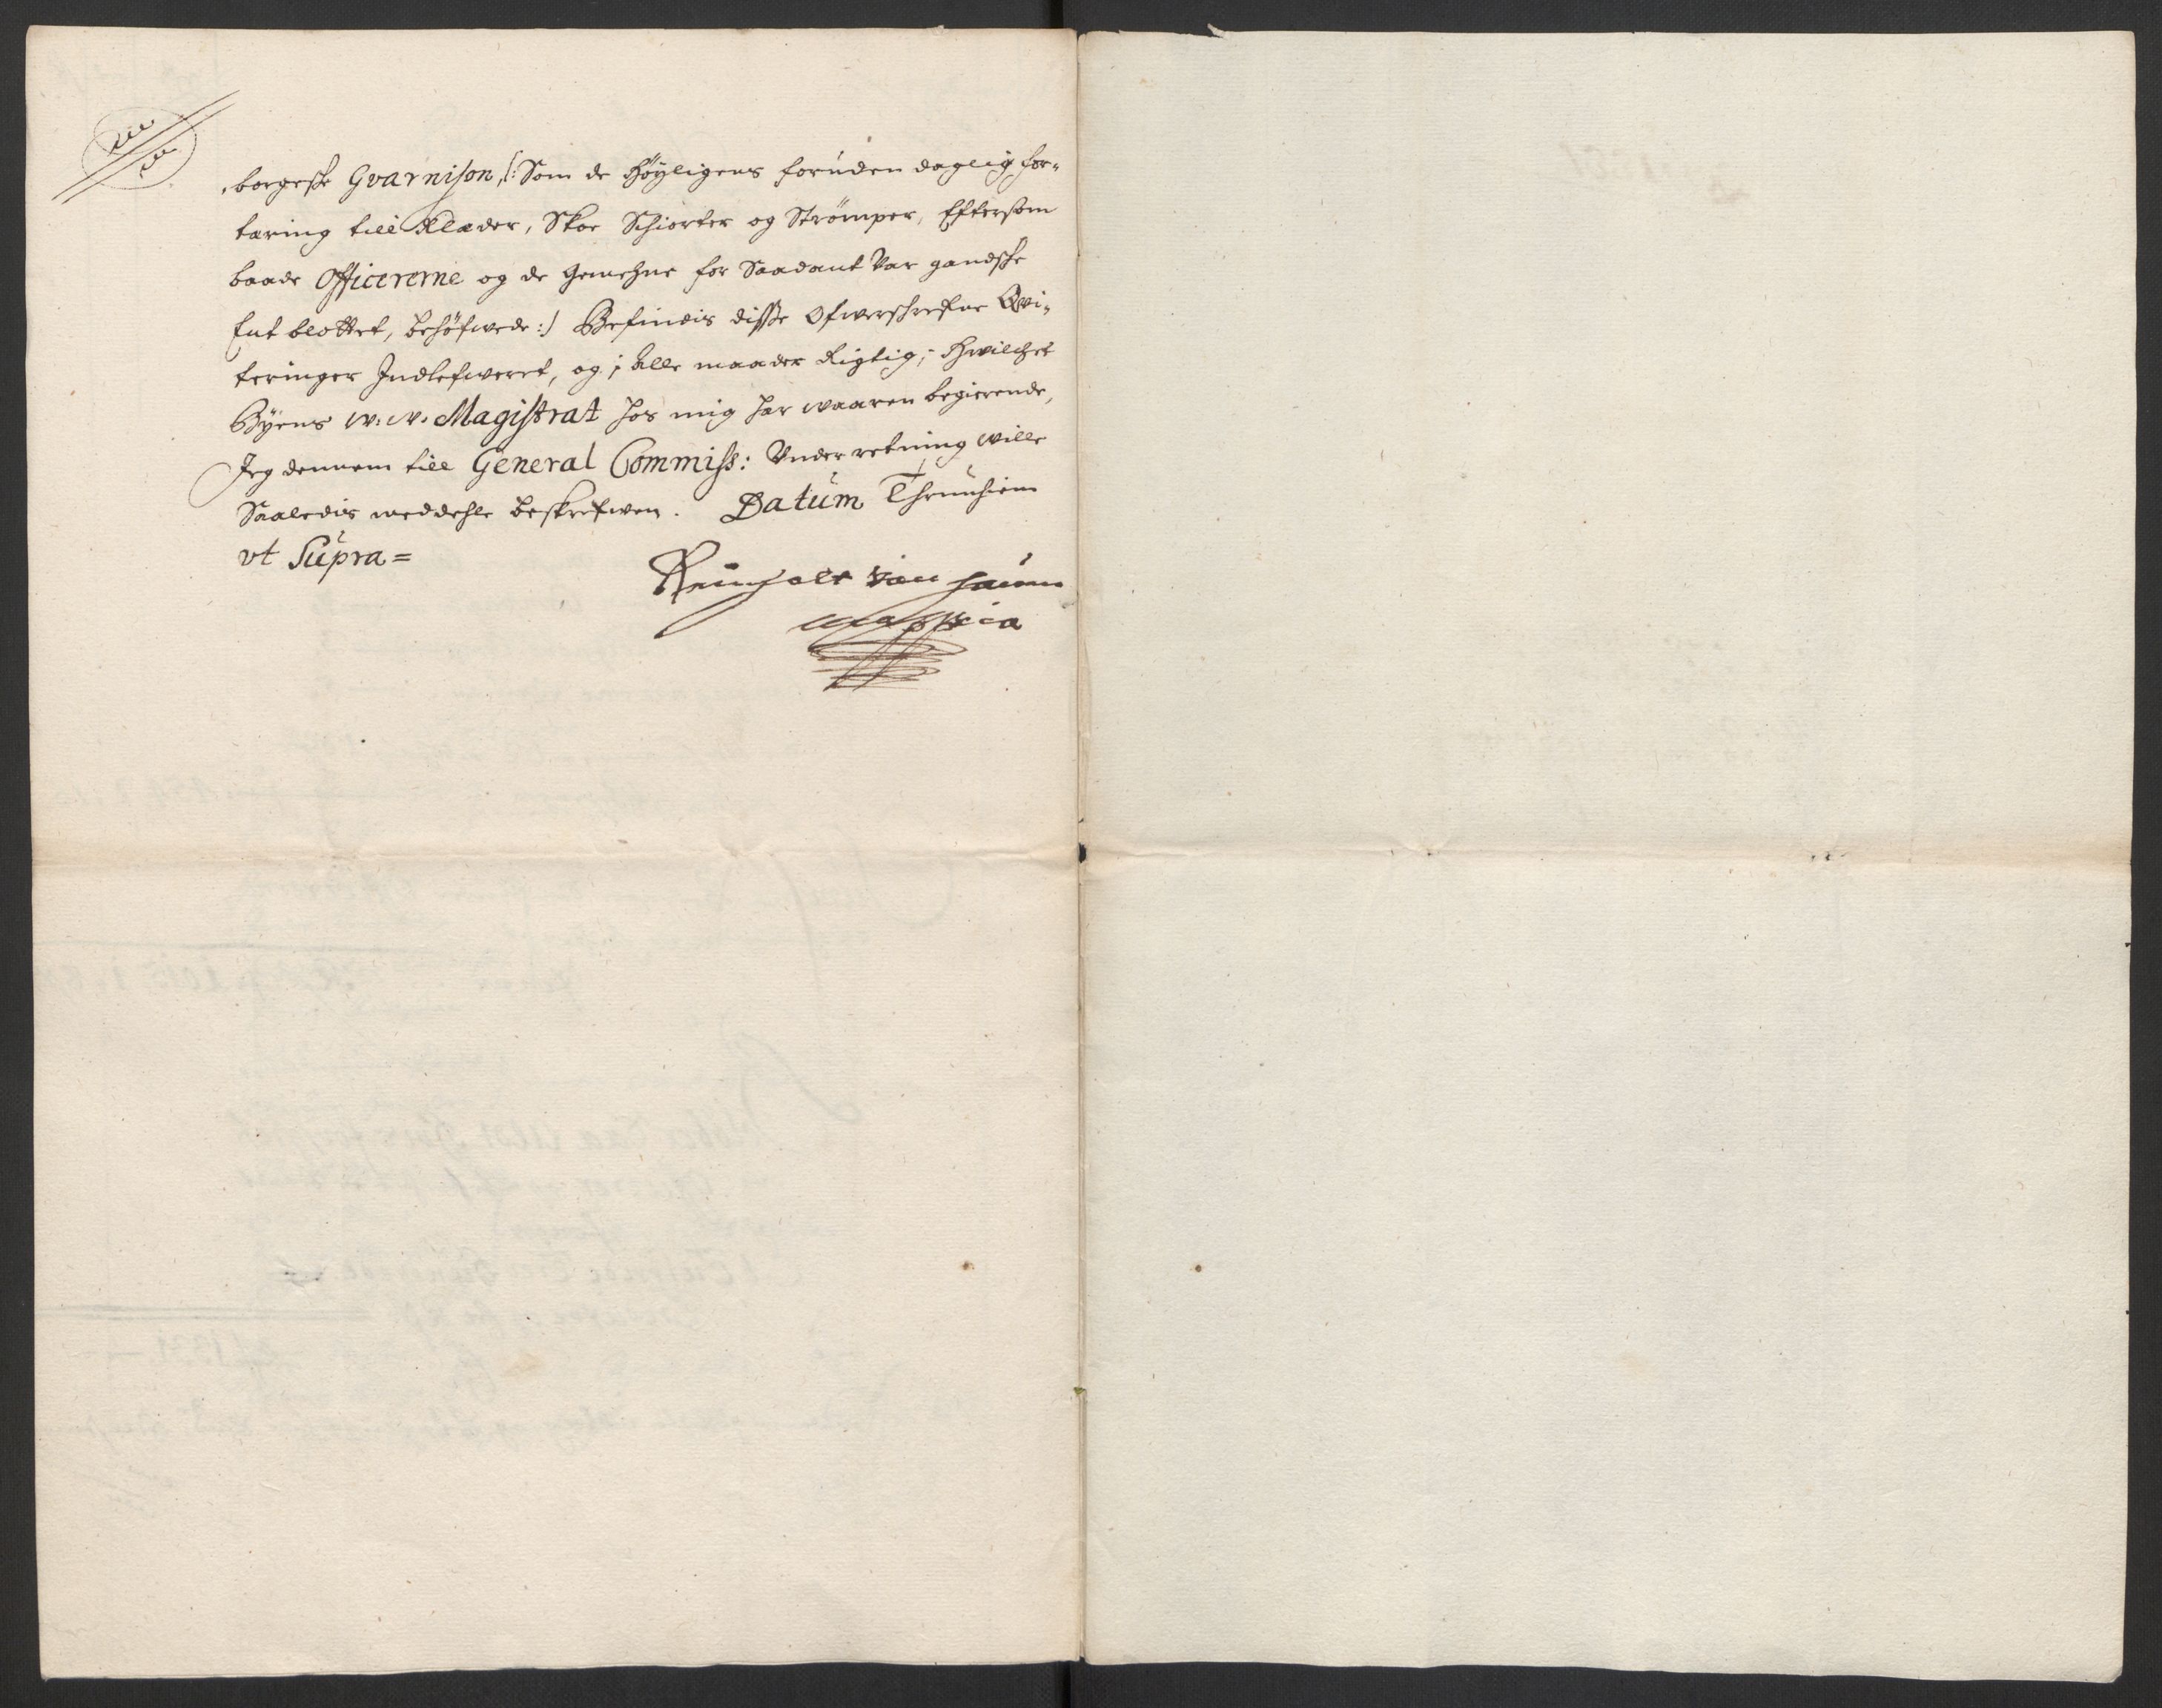 borgeske Gvarnison, /: Som de Höyligens foruden daglig for-
tæring till Klæder, Skoe Schiorter og Strömper, Eftersom
baade Officererne og de Gemehne for Saadant Var gandske
Ent blottet, behöfwede :/ Befindis disse Ofwerschrefne Qvi-
teringer Indlefweret, og i alle maader Rigtig; Hwilchet
Byens w: w. Magistrat hos mig har waaren begierende,
Jeg dennem till General Commiss: Underretning wille
Saaledis meddehle beskrefwen. Datum Thrunhiem
vt Supra =
Reinholt von